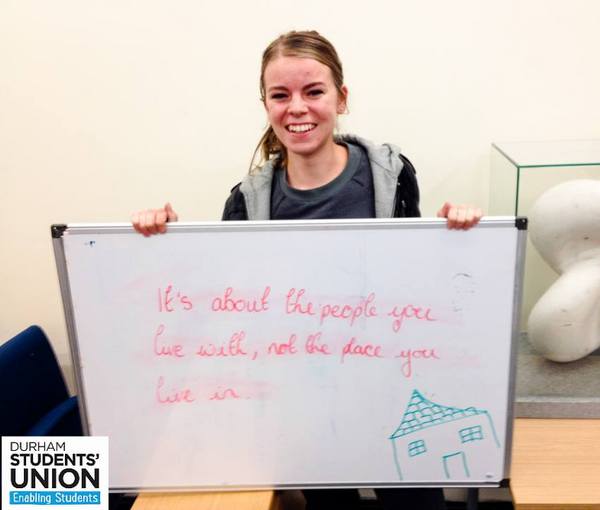 It's about the people you
live with, not the place you
live in.
DURHAM
STUDENTS'
UNION
Enabling Students